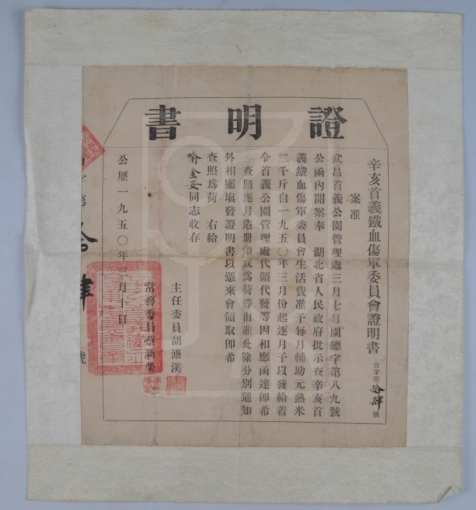 證明書
辛亥首義鐵血傷軍委員會證明書 字第拾肆號
案准
武昌首義公園管理處三月七日園總字第八九號
公函內開案奉 湖北省人民政府批示查辛亥首
義鐵血傷軍委員會生活費准予每月輔助元熟米
三千斤自一九五〇年三月份起逐月予以發給着
令首義公園管理處代領代發等因相應函達即希
查照逐月造册領取為荷等由准此除分別通知
外相應填發證明書以憑來會領取即希
查照為荷 右給
同志收存
主任委員胡
常務委員
公歷一九五〇年三月十日
字第拾肆號